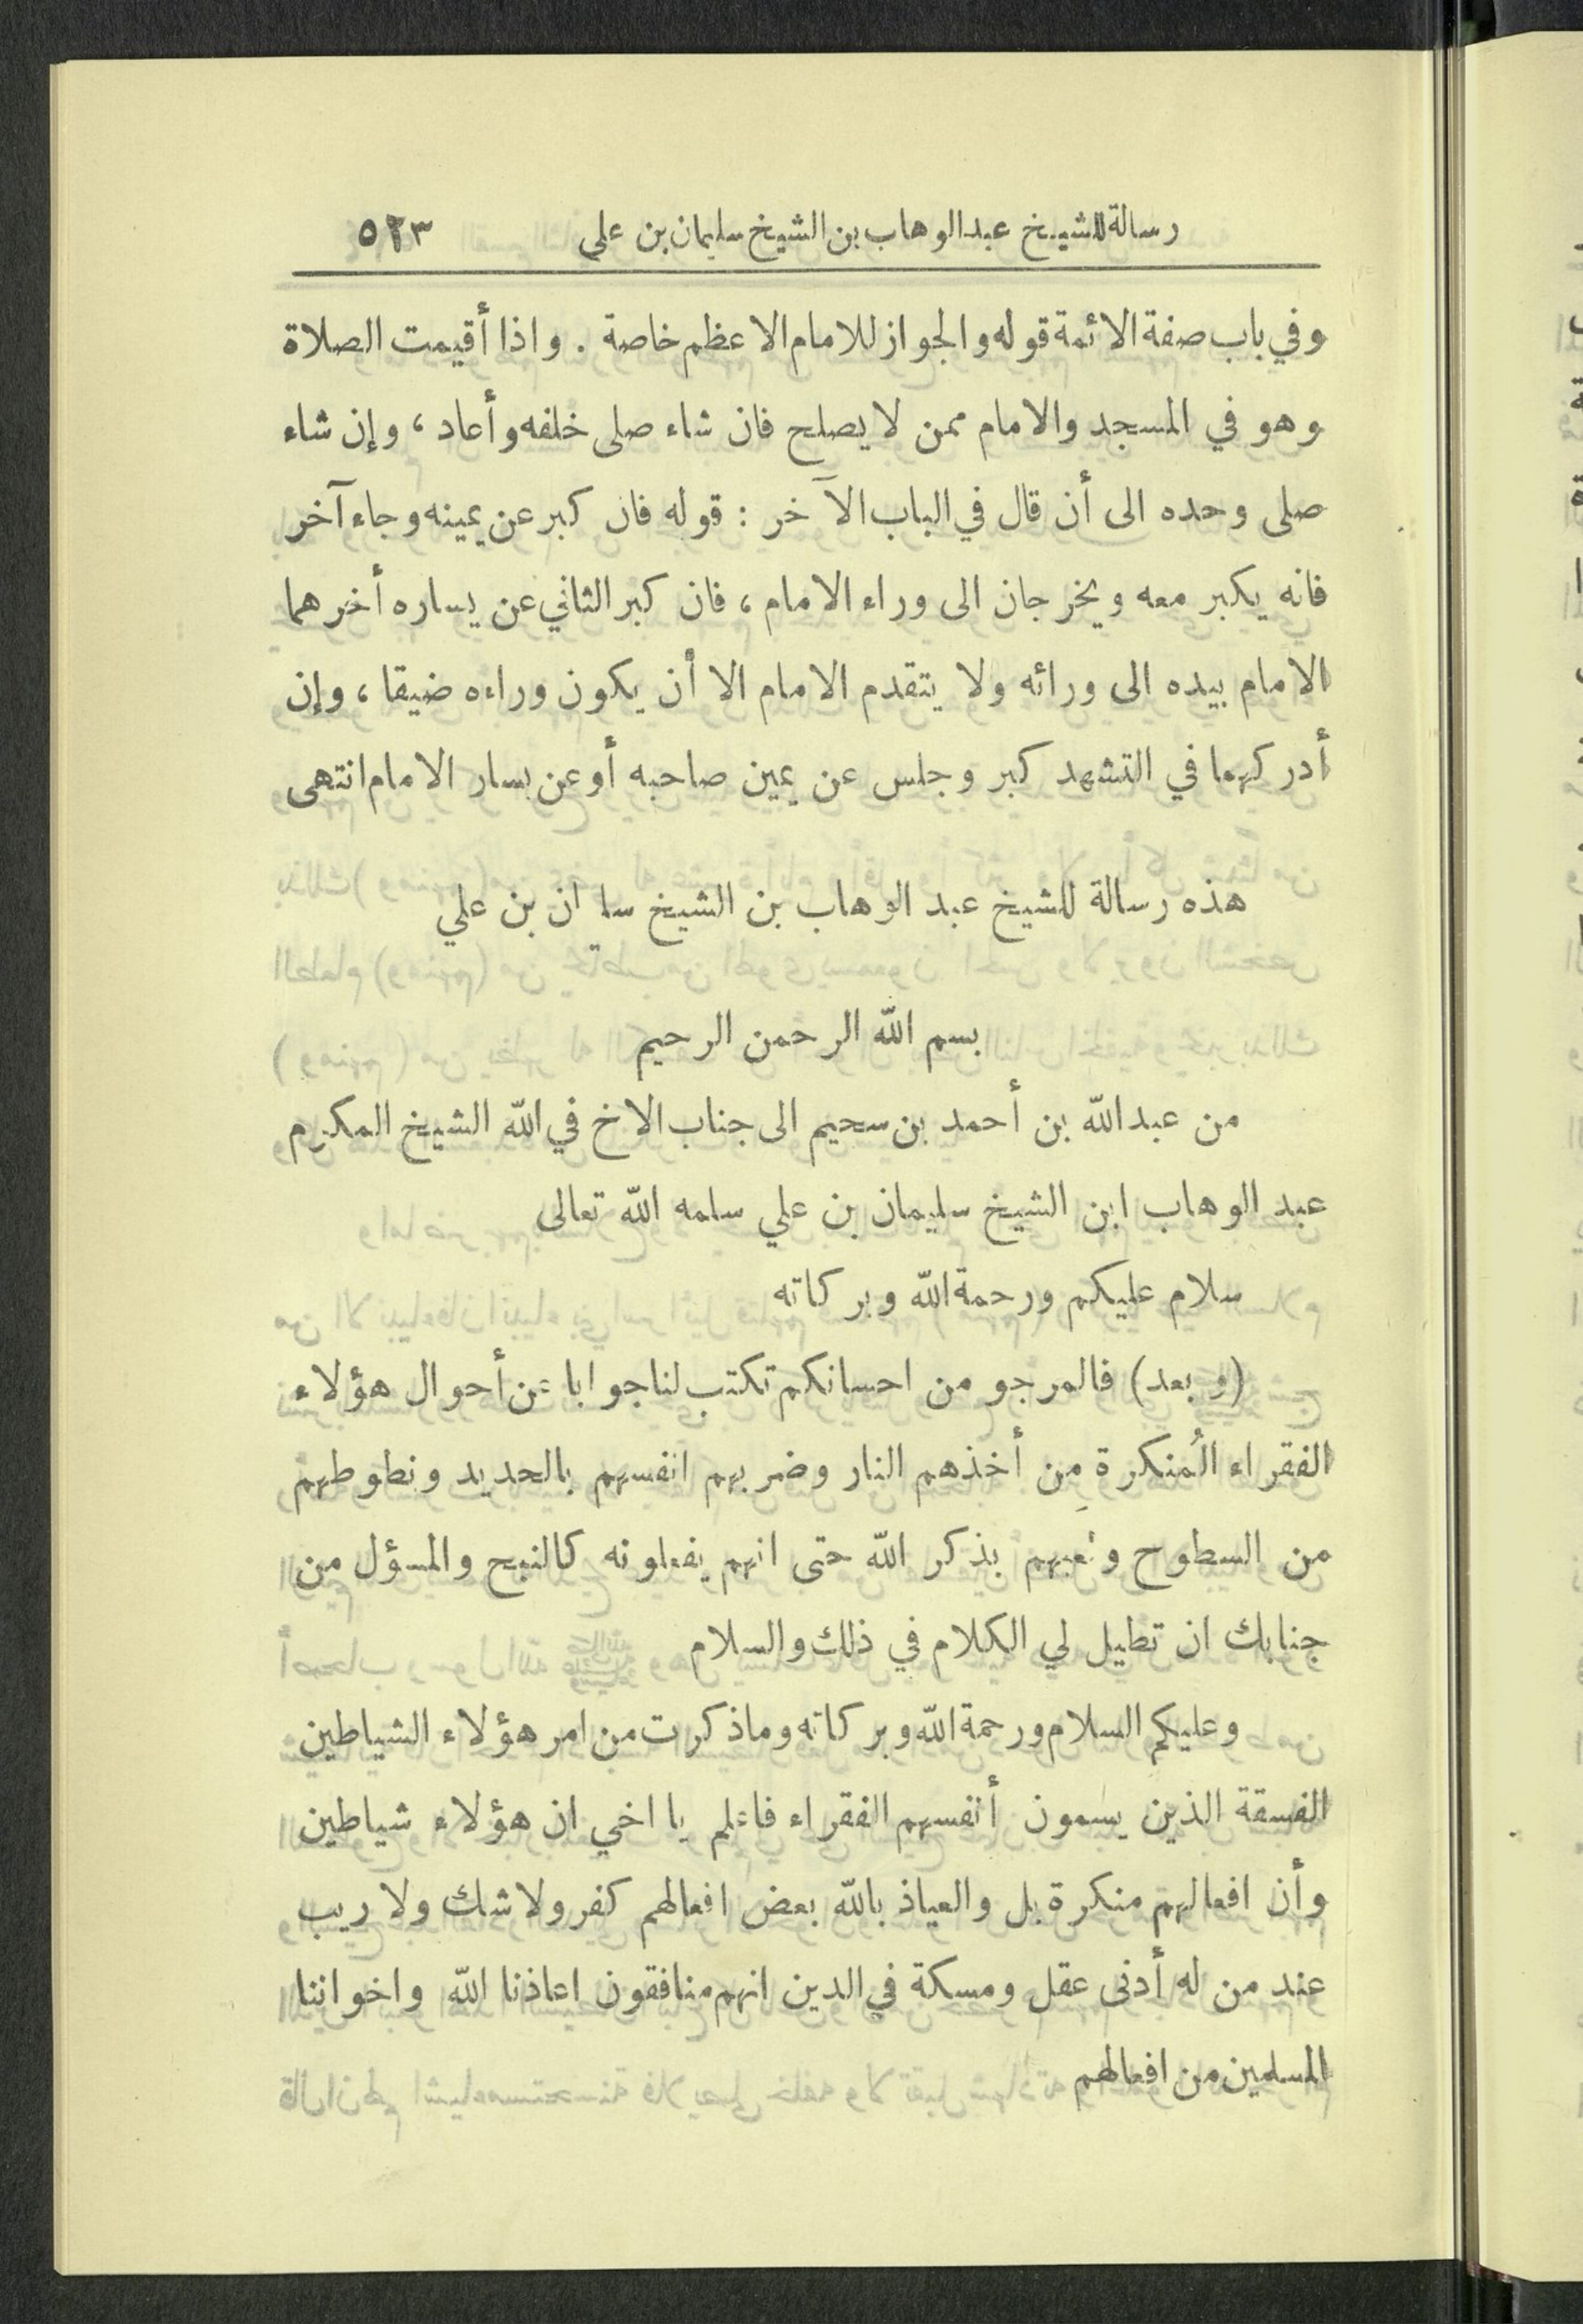 رسالة للشيخ عبد الوهاب بن الشيخ سليمان بن علي ٥٢٣
وفي باب صفة الائمة قوله والجواز للامام الاعظم خاصة . واذا أقيمت الصلاة
وهو في المسجد والامام ممن لا يصلح فان شاء صلى خلفه وأعاد ، وإن شاء
صلى وحده الى أن قال في الباب الآخر : قوله فان كبر عن يمينه وجاء آخر
فانه يكبر معه ويخرجان الى وراء الامام ، فان كبر الثاني عن يساره أخرهما
الامام بيده الى ورائه ولا يتقدم الامام الا أن يكون وراءه ضيقا ، وإن
أدركهما في التشهد كبر وجلس عن يمين صاحبه أو عن يسار الامام انتهى
هذه رسالة للشيخ عبد الوهاب بن الشيخ سا ان بن علي
بسم الله الرحمن الرحيم
من عبد الله بن أحمد بن سحيم الى جناب الاخ في الله الشيخ المكرم
عبد الوهاب ابن الشيخ سليمان بن علي سلمه الله تعالى
سلام عليكم ورحمة الله وبركاته
(وبعد) فالمرجو من احسانكم تكتب لنا جوابا عن أحوال هؤلاء
الفقراء المُنكرة مِن أخذهم النار وضربهم انفسهم بالحديد ونطوطهم
من السطوح ولعبهم بذكر الله حتى انهم يفعلونه كالنبح والمسؤل من
جنابك ان تطيل لي الكلام في ذلك والسلام
وعليكم السلام ورحمة الله وبركاته وما ذكرت من امر هؤلاء الشياطين
الفسقة الذين يسمون أنفسهم الفقراء فاعلم يا اخي ان هؤلاء شياطين
وأن افعالهم منكرة بل والعياذ بالله بعض افعالهم كفر ولا شك ولا ريب
عند من له أدنى عقل ومسكة في الدين انهم منافقون اعاذنا الله واخواننا
المسلمين من افعالهم